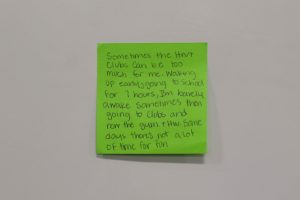 Sometimes the HW
Clubs can be too
much for me. Waking
up early, going to school
for 7 hours, I'm barely
awake sometimes then
going to clubs and
then the gym + HW. Some
days there's not a lot
of time for fun